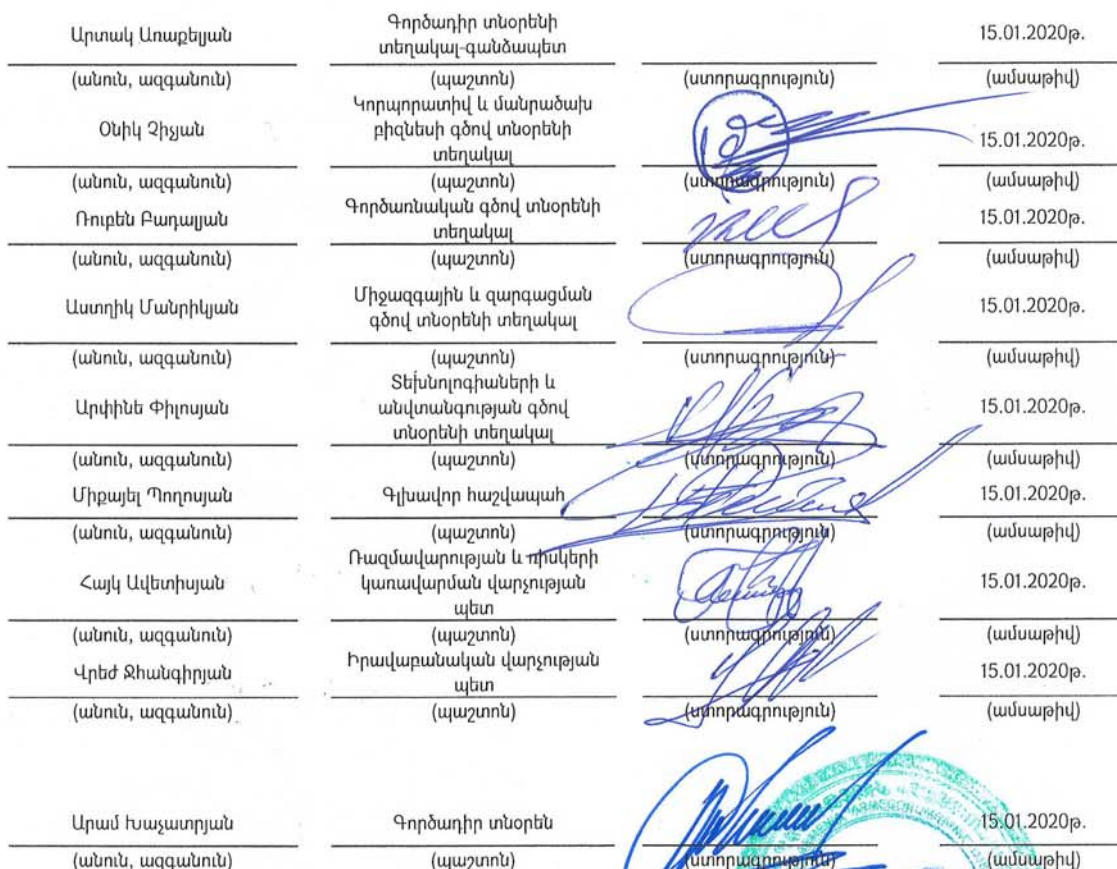 Արտակ Առաքելյան
Գործադիր տնօրենի
տեղակալ-գանձապետ
15.01.2020թ.
(անուն, ազգանուն) (պաշտոն) (ստորագրություն) (ամսաթիվ)
Օնիկ Չիչյան
Կորպորատիվ և մանրածախ
բիզնեսի գծով տնօրենի
տեղակալ
15.01.2020թ.
(անուն, ազգանուն) (պաշտոն) (ստորագրություն) (ամսաթիվ)
Ռուբեն Բադալյան
Գործառնական գծով տնօրենի
տեղակալ
15.01.2020թ.
(անուն, ազգանուն) (պաշտոն) (ստորագրություն) (ամսաթիվ)
Աստղիկ Մանրիկյան
Միջազգային և զարգացման
գծով տնօրենի տեղակալ
15.01.2020թ.
(անուն, ազգանուն) (պաշտոն) (ստորագրություն) (ամսաթիվ)
Արփինե Փիլոսյան
Տեխնոլոգիաների և
անվտանգության գծով
տնօրենի տեղակալ
15.01.2020թ.
(անուն, ազգանուն) (պաշտոն) (ստորագրություն) (ամսաթիվ)
Միքայել Պողոսյան
Գլխավոր հաշվապահ
15.01.2020թ.
(անուն, ազգանուն) (պաշտոն) (ստորագրություն) (ամսաթիվ)
Հայկ Ավետիսյան
Ռազմավարության և ռիսկերի
կառավարման վարչության
պետ
15.01.2020թ.
(անուն, ազգանուն) (պաշտոն) (ստորագրություն) (ամսաթիվ)
Վրեժ Ջհանգիրյան
Իրավաբանական վարչության
պետ
15.01.2020թ.
(անուն, ազգանուն) (պաշտոն) (ստորագրություն) (ամսաթիվ)
Արամ Խաչատրյան
Գործադիր տնօրեն
15.01.2020թ.
(անուն, ազգանուն) (պաշտոն) (ստորագրություն) (ամսաթիվ)